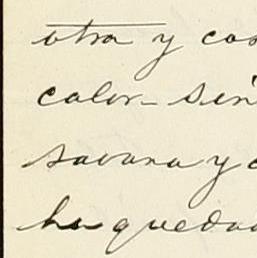 otra y cos
calor - sin
savana y c
ha quedad